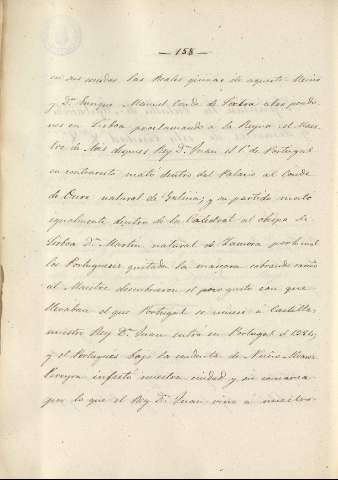 — 158 —
en sus modos las Reales quinas de aqueste Reino
y Dn. Enrique Manuel Conde de Sintra alzó pendo-
nes en Lisboa proclamando a la Reyna: el Maes-
tre de Avis despues Rey Dn. Juan el 1º de Portugal
en contrario mató dentro del Palacio al Conde
de Oren, natural de Galicia; y su partido mató
igualmente dentro de la Catedral al obispo de
Lisboa Dn. Martin, natural de Zamora por lo cual
los Portugueses quitada la mascara cobrando cariño
al Maestre descubrieron el poco gusto con que
llevaban el que Portugal se uniese a Castilla;
nuestro Rey Dn. Juan entró en Portugal el 1384,
y el Portugues bajo la conducta de Nuño Alvarez
Pereyra infestó nuestra ciudad y su comarca
por lo que el Rey Dn. Juan vino a nuestro